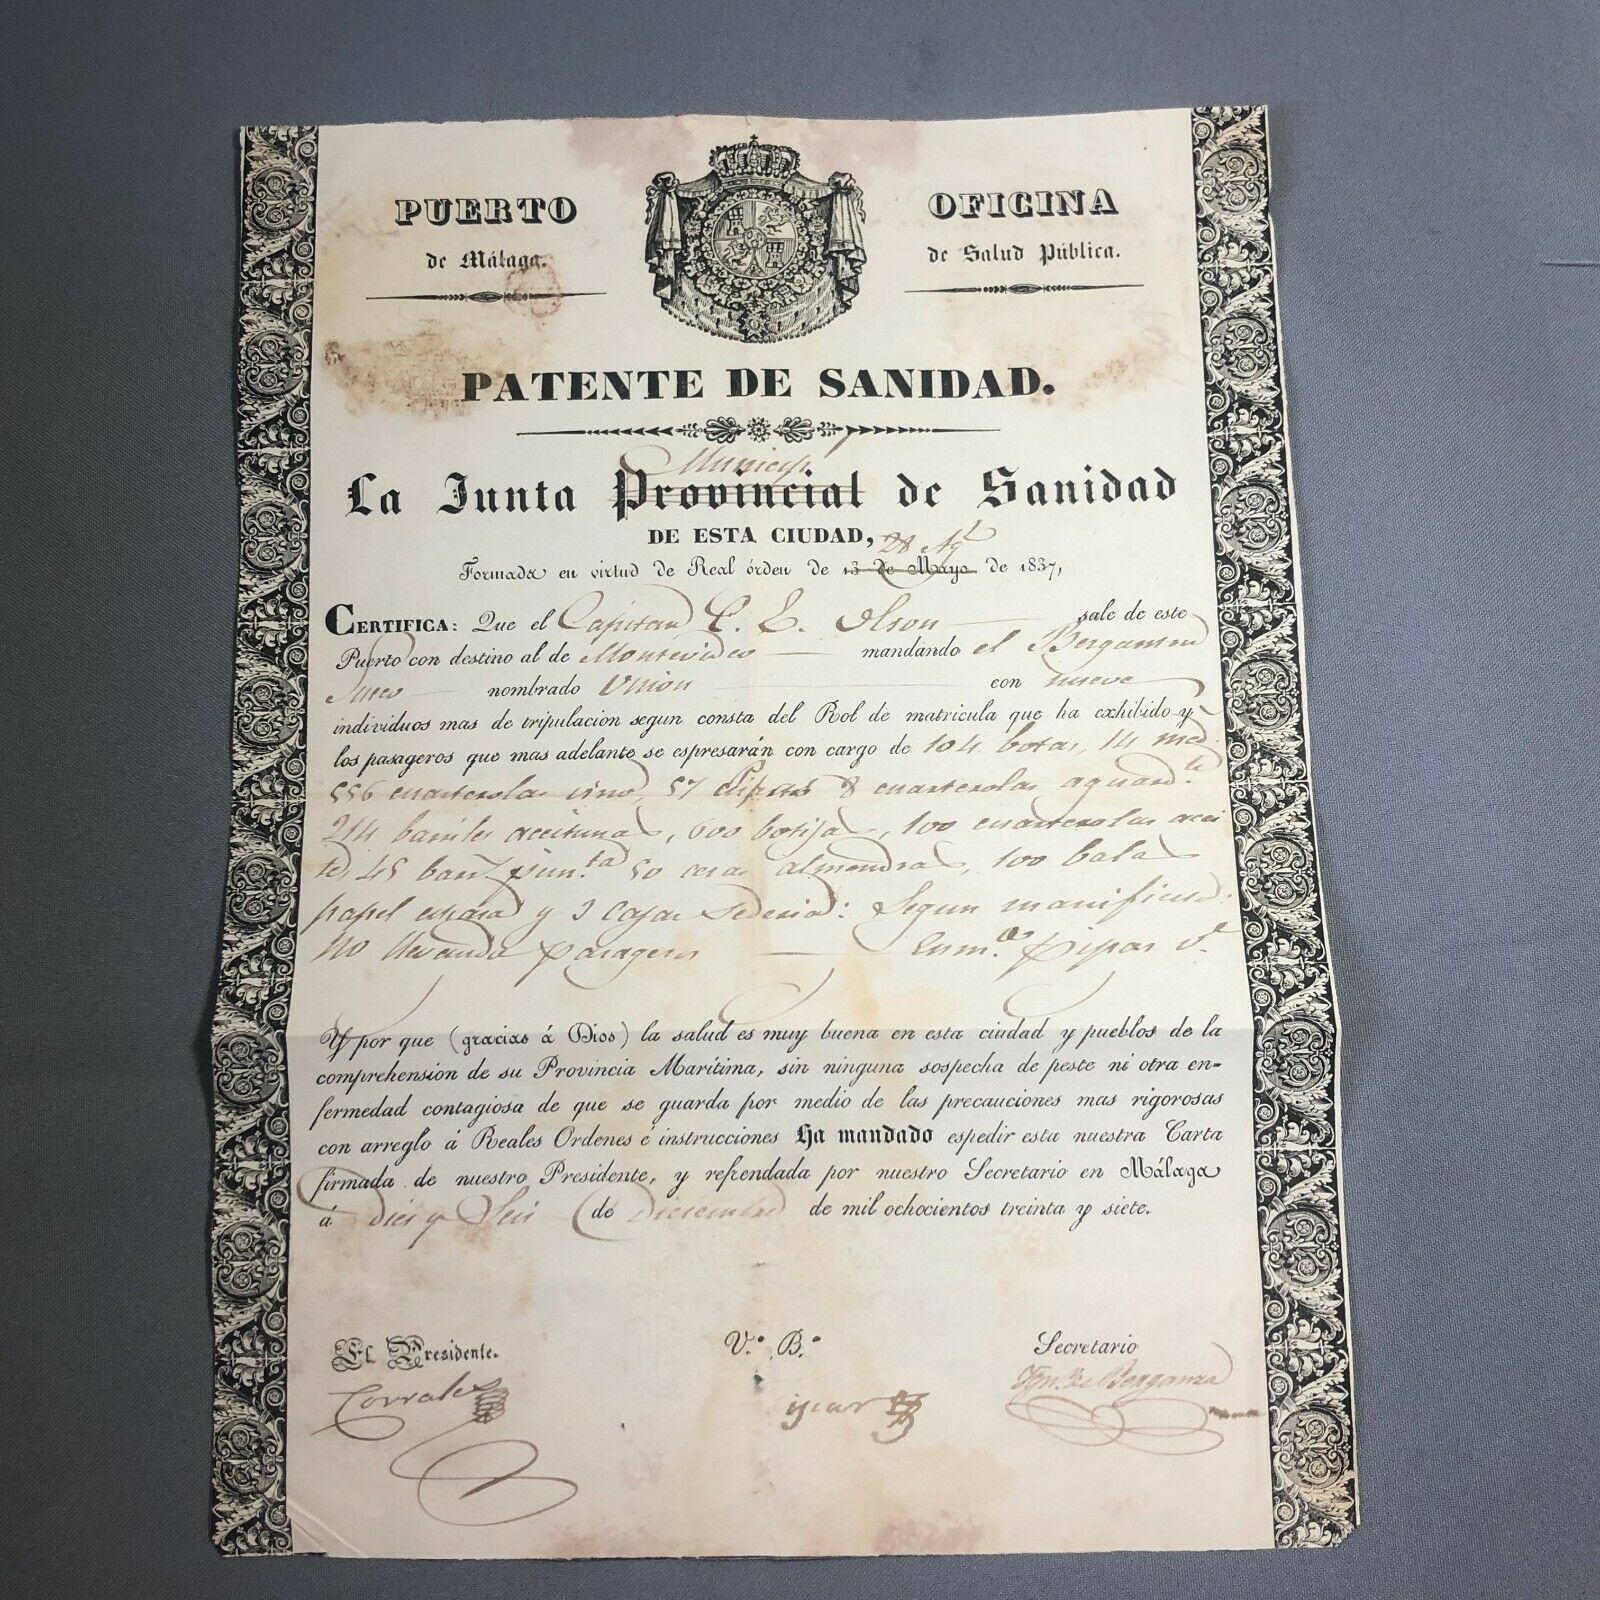 PUERTO
de Málaga.
OFICINA
de Salud Pública.
PATENTE DE SANIDAD.
Municipl
La Junta Provincial de Sanidad
DE ESTA CIUDAD,
28 Agt
Formada en virtud de Real órden de 13 de Mayo de 1837,
CERTIFICA: Que el Capitan C. E. Olson sale de este
Puerto con destino al de Montevideo mandando el Bergantin
Sueco nombrado Union con nueve
individuos mas de tripulacion segun consta del Rol de matrícula que ha exhibido y
los pasageros que mas adelante se espresarán con cargo de 104 botas, 14 med
556 cuarterolas vino, 57 8 cuarterolas aguardte
214 barriles aceitunas, 600 botijas, 100 cuarterolas acei
te, 45 50 almendras, 100 balas
papel y 3 cajas sederia: Segun manifiesto:
no llevando pasageros Enmdo pipas Ve
Y por que (gracias á Dios) la salud es muy buena en esta ciudad y pueblos de la
comprehension de su Provincia Marítima, sin ninguna sospecha de peste ni otra en-
fermedad contagiosa de que se guarda por medio de las precauciones mas rigorosas
con arreglo á Reales Ordenes é instrucciones Ha mandado espedir esta nuestra Carta
firmada de nuestro Presidente, y refrendada por nuestro Secretario en Málaga
á diez y Seis de Diciembre de mil ochocientos treinta y siete.
El Presidente.
V.º B.º
Secretario
Corrales
Ign.º de Berganza